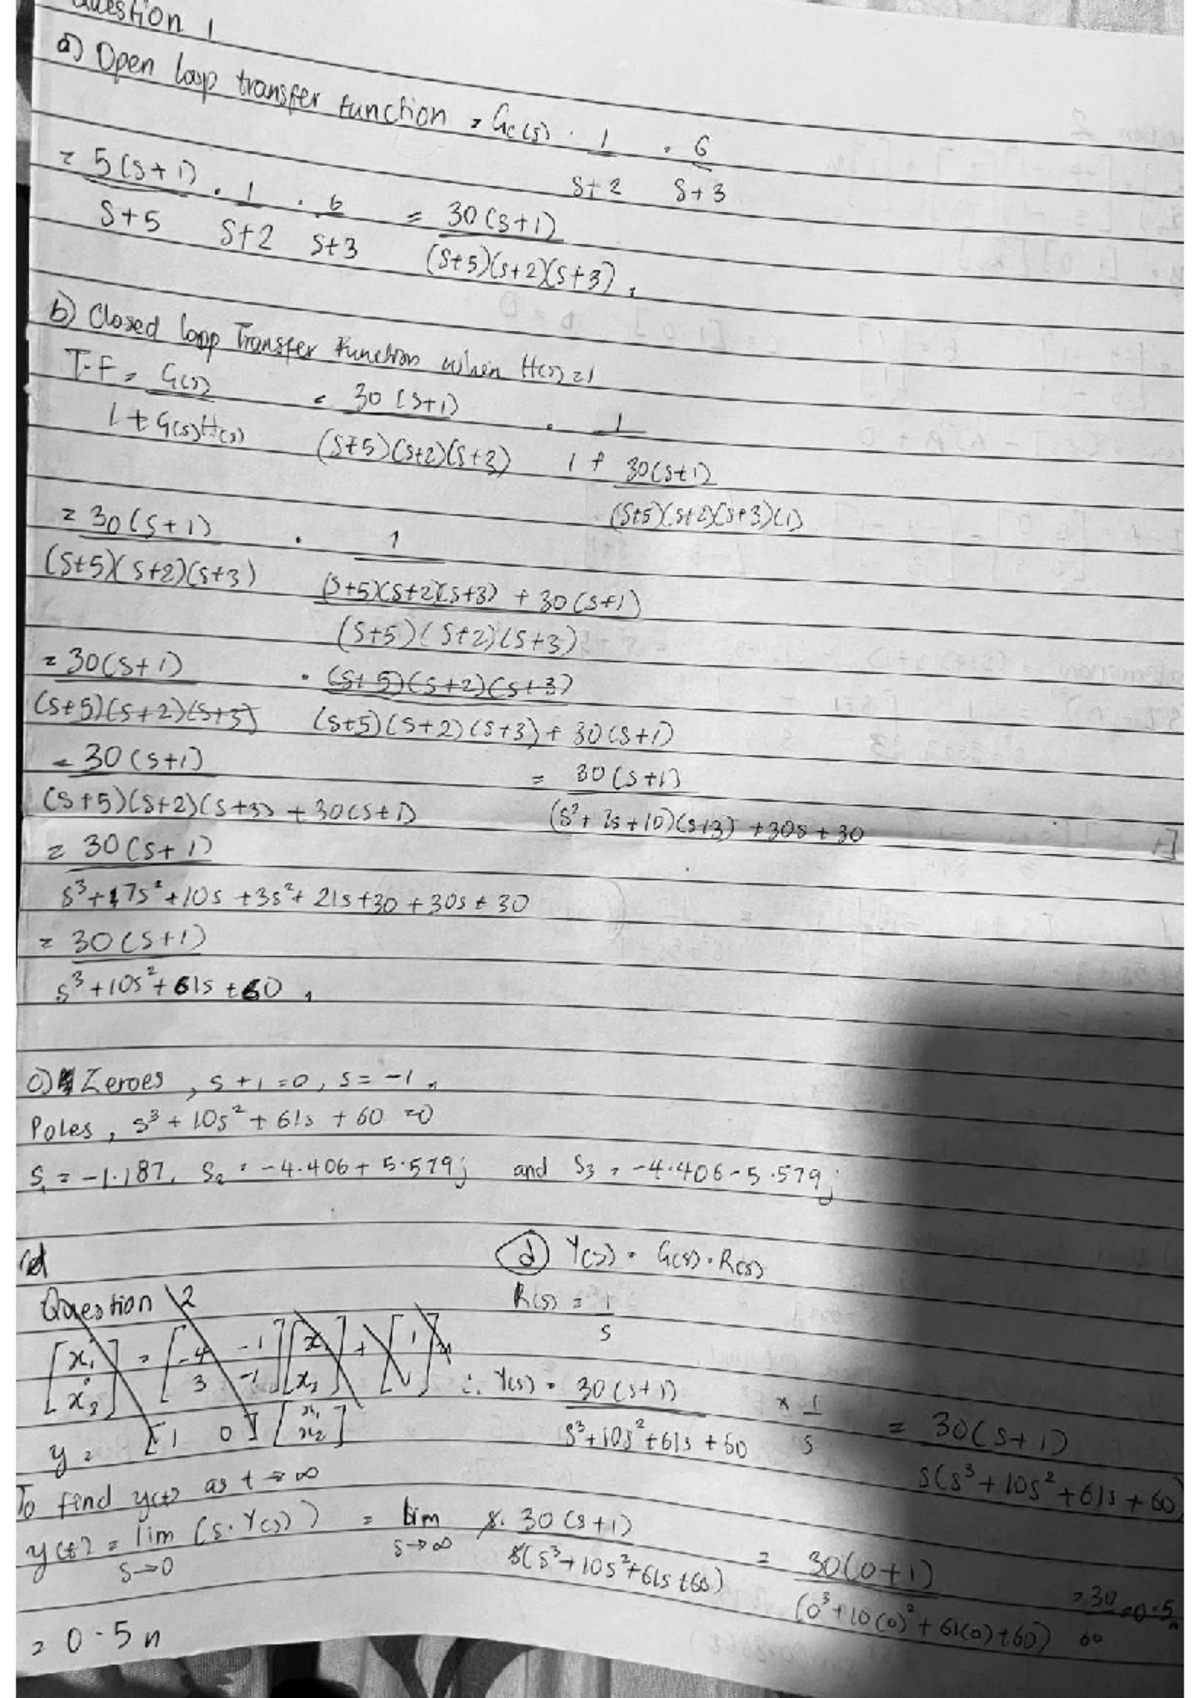 Question 1
a) Open loop transfer function = Gc(s) · 1/(s+2) · 6/(s+3)
= 5(s+1)/(s+5) · 1/(s+2) · 6/(s+3) = 30(s+1)/((s+5)(s+2)(s+3))
b) Closed loop Transfer Function when H(s)=1
T.F = G(s)/(1+G(s)H(s)) = 30(s+1)/((s+5)(s+2)(s+3)) · 1/(1 + 30(s+1)/((s+5)(s+2)(s+3)(1)))
= 30(s+1)/((s+5)(s+2)(s+3)) · 1/(((s+5)(s+2)(s+3) + 30(s+1))/((s+5)(s+2)(s+3)))
= 30(s+1)/((s+5)(s+2)(s+3)) · (s+5)(s+2)(s+3)/((s+5)(s+2)(s+3) + 30(s+1))
= 30(s+1)/((s+5)(s+2)(s+3) + 30(s+1)) = 30(s+1)/((s²+7s+10)(s+3) + 30s + 30)
= 30(s+1)/(s³+7s²+10s+3s²+21s+30+30s+30)
= 30(s+1)/(s³+10s²+61s+60)
c) Zeroes, s+1=0, s=-1
Poles, s³+10s²+61s+60=0
s₁ = -1.187, s₂ = -4.406+5.579j and s₃ = -4.406-5.579j
d
Question 2
[ẋ₁ ẋ₂] = [-4 -1 3 -1][x₁ x₂] + [1 1]u
y = [1 0][x₁ x₂]
d) Y(s) = G(s)·R(s)
R(s) = 1/s
∴ Y(s) = 30(s+1)/(s³+10s²+61s+60) × 1/s = 30(s+1)/(s(s³+10s²+61s+60))
To find y(t) as t→∞
y(t) = lim s→0 (s·Y(s)) = lim s→∞ s·30(s+1)/(s(s³+10s²+61s+60)) = 30(0+1)/(0³+10(0)²+61(0)+60) = 30/60 = 0.5
= 0.5